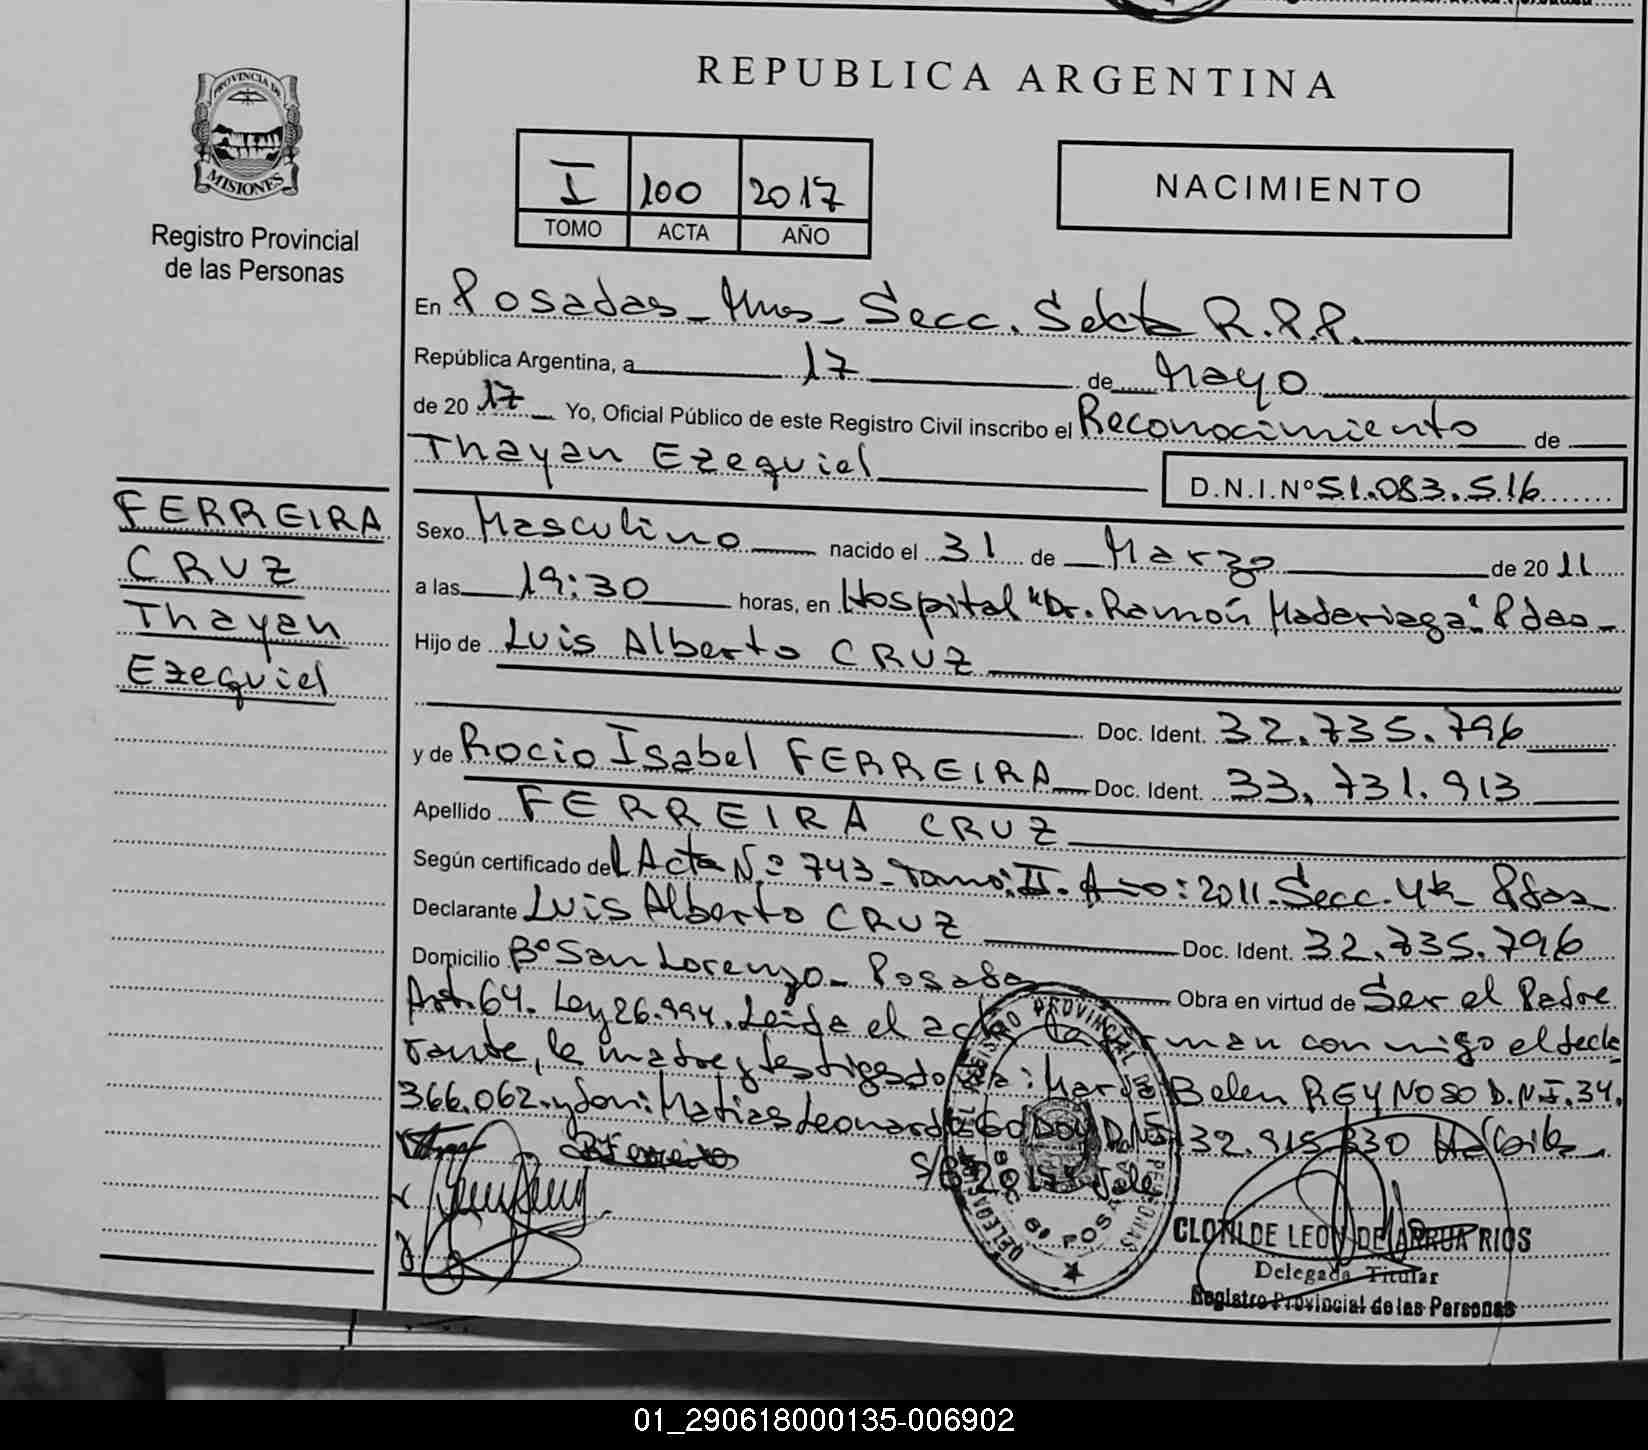 REPUBLICA ARGENTINA
PROVINCIA DE
MISIONES
Registro Provincial
de las Personas
I 100 2017
TOMO ACTA AÑO
NACIMIENTO
En Posadas - Mnes - Secc. Sexta R.P.P.
República Argentina, a 17 de Mayo
de 20 17 Yo, Oficial Público de este Registro Civil inscribo el Reconocimiento de
Thayan Ezequiel
D.N.I.Nº 51.083.516
FERREIRA
CRUZ
Thayan
Ezequiel
Sexo Masculino nacido el 31 de Marzo de 20 11
a las 19:30 horas, en Hospital "Dr. Ramón Madariaga" Pdas -
Hijo de Luis Alberto CRUZ
Doc. Ident. 32.735.796
y de Rocio Isabel FERREIRA Doc. Ident. 33.731.913
Apellido FERREIRA CRUZ
Según certificado del Acta N.º 743 - Tomo: II. Año: 2011. Secc. 4ta Pdas
Declarante Luis Alberto CRUZ Doc. Ident. 32.735.796
Domicilio Bº San Lorenzo - Posadas Obra en virtud de Ser el Padre
Art. 64. Ley 26.994. Leida el acta la firman conmigo el decla
rante, la madre y testigos doña: Maria Belen REYNOSO D.N.I. 34.
366.062. y don: Matias Leonardo GODOY D.N.I. 32.915.330 Hábiles
S/B 2017 Vale
REGISTRO PROVINCIAL DE LAS PERSONAS
SECC. 6º POSADAS
CLOTILDE LEON DE ARRUA RIOS
Delegada Titular
Registro Provincial de las Personas
01_290618000135-006902